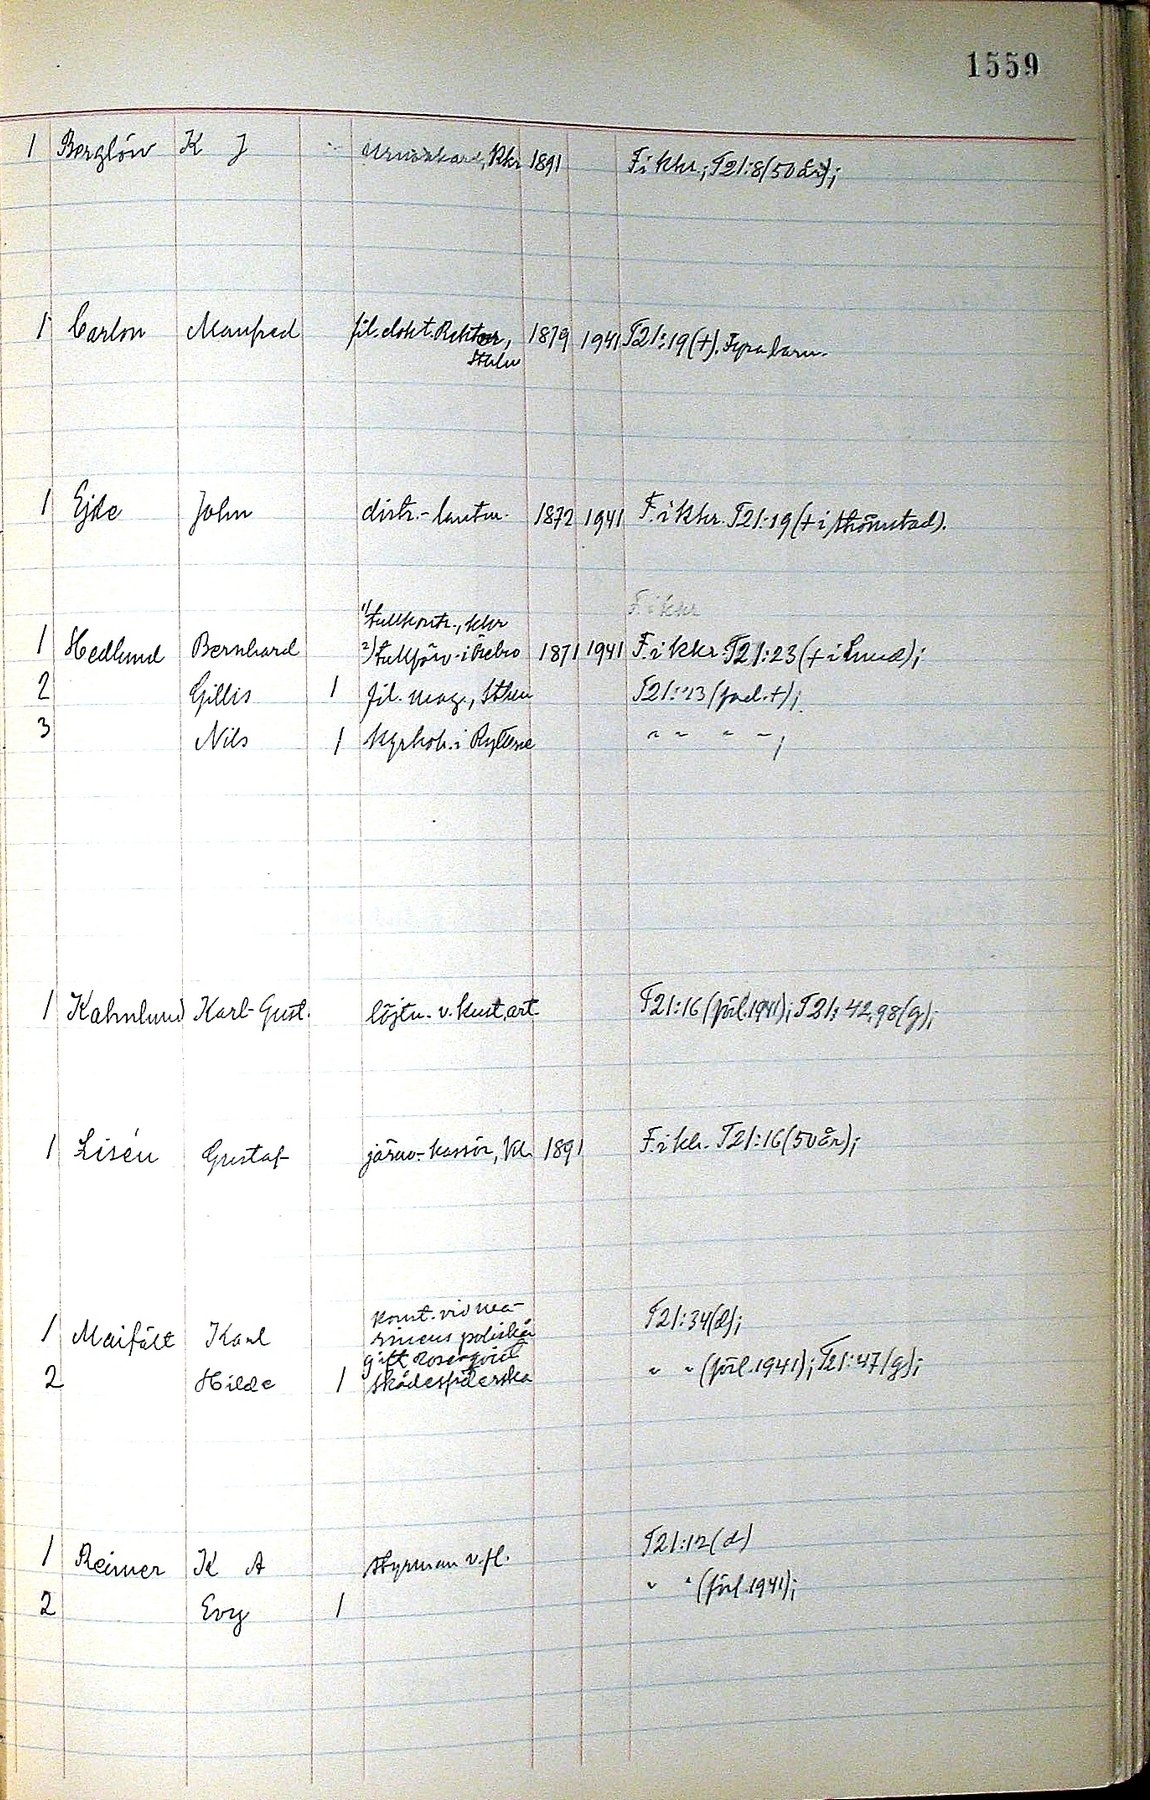 1559
1 Berglöw K J urmakare, Kkr 1891 F. i khr; T21:8(50 år);
1 Carlson Manfred fil. dokt. Rektor, 1879 1941 T21:19(+). Fyra barn.
Sthlm
1 Ejde John distr.-lantm. 1872 1941 F. i Khr. T21:19(+ i Strömstad).
1) tullkontr., khr F. i khr
1 Hedlund Bernhard 2) tullförv. i Örebro 1871 1941 F. i kkr. T21:23(+ i Lund);
2 Gillis 1 fil. mag., Sthlm T21:23(fad.+);
3 Nils 1 kyrkoh. i Ryttern " " " ";
1 Kahnlund Karl-Gust. löjtn. v. kust.art. T21:16(förl.1941); T21:42,98(g);
1 Lisén Gustaf järnv.-kassör, Vd. 1891 F. i kh. T21:16(50 år);
konst. vid ma-
1 Maifält Karl rinens poliskår T21:34(d);
gift Rosenqvist
2 Hilde 1 skådespelerska " " (förl.1941); T21:47(g);
1 Reimer K A styrman v. fl. T21:12(d)
2 Evy 1 " " (förl.1941);